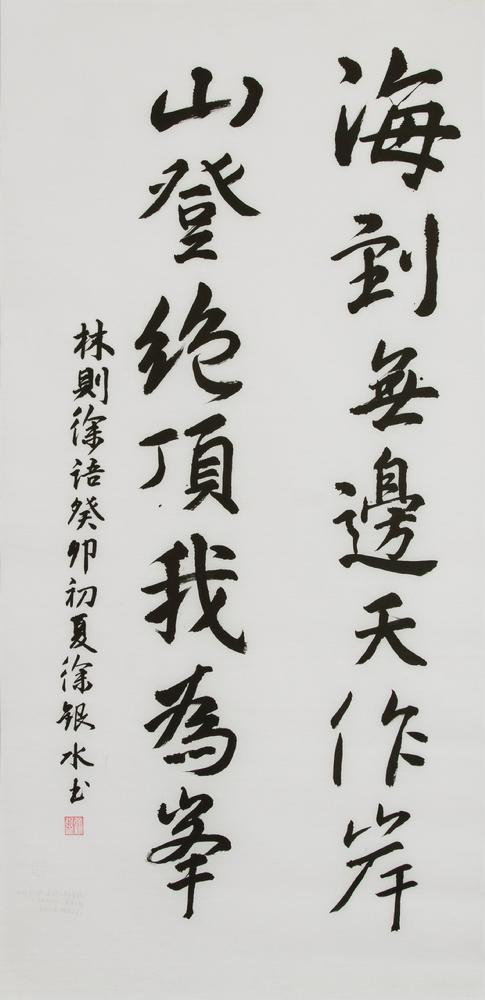 海到無邊天作岸
山登絶頂我為峯
林則徐語癸卯初夏徐銀水书